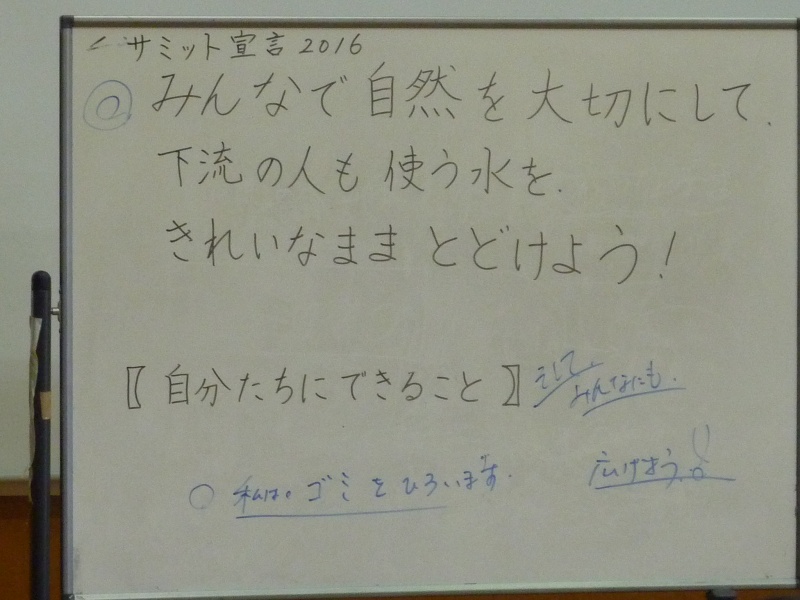 サミット宣言 2016
◎ みんなで自然を大切にして、
下流の人も使う水を、
きれいなままとどけよう!
〖自分たちにできること〗そして、
みんなにも、
広げよう!!
○ 私は、ゴミをひろいます。